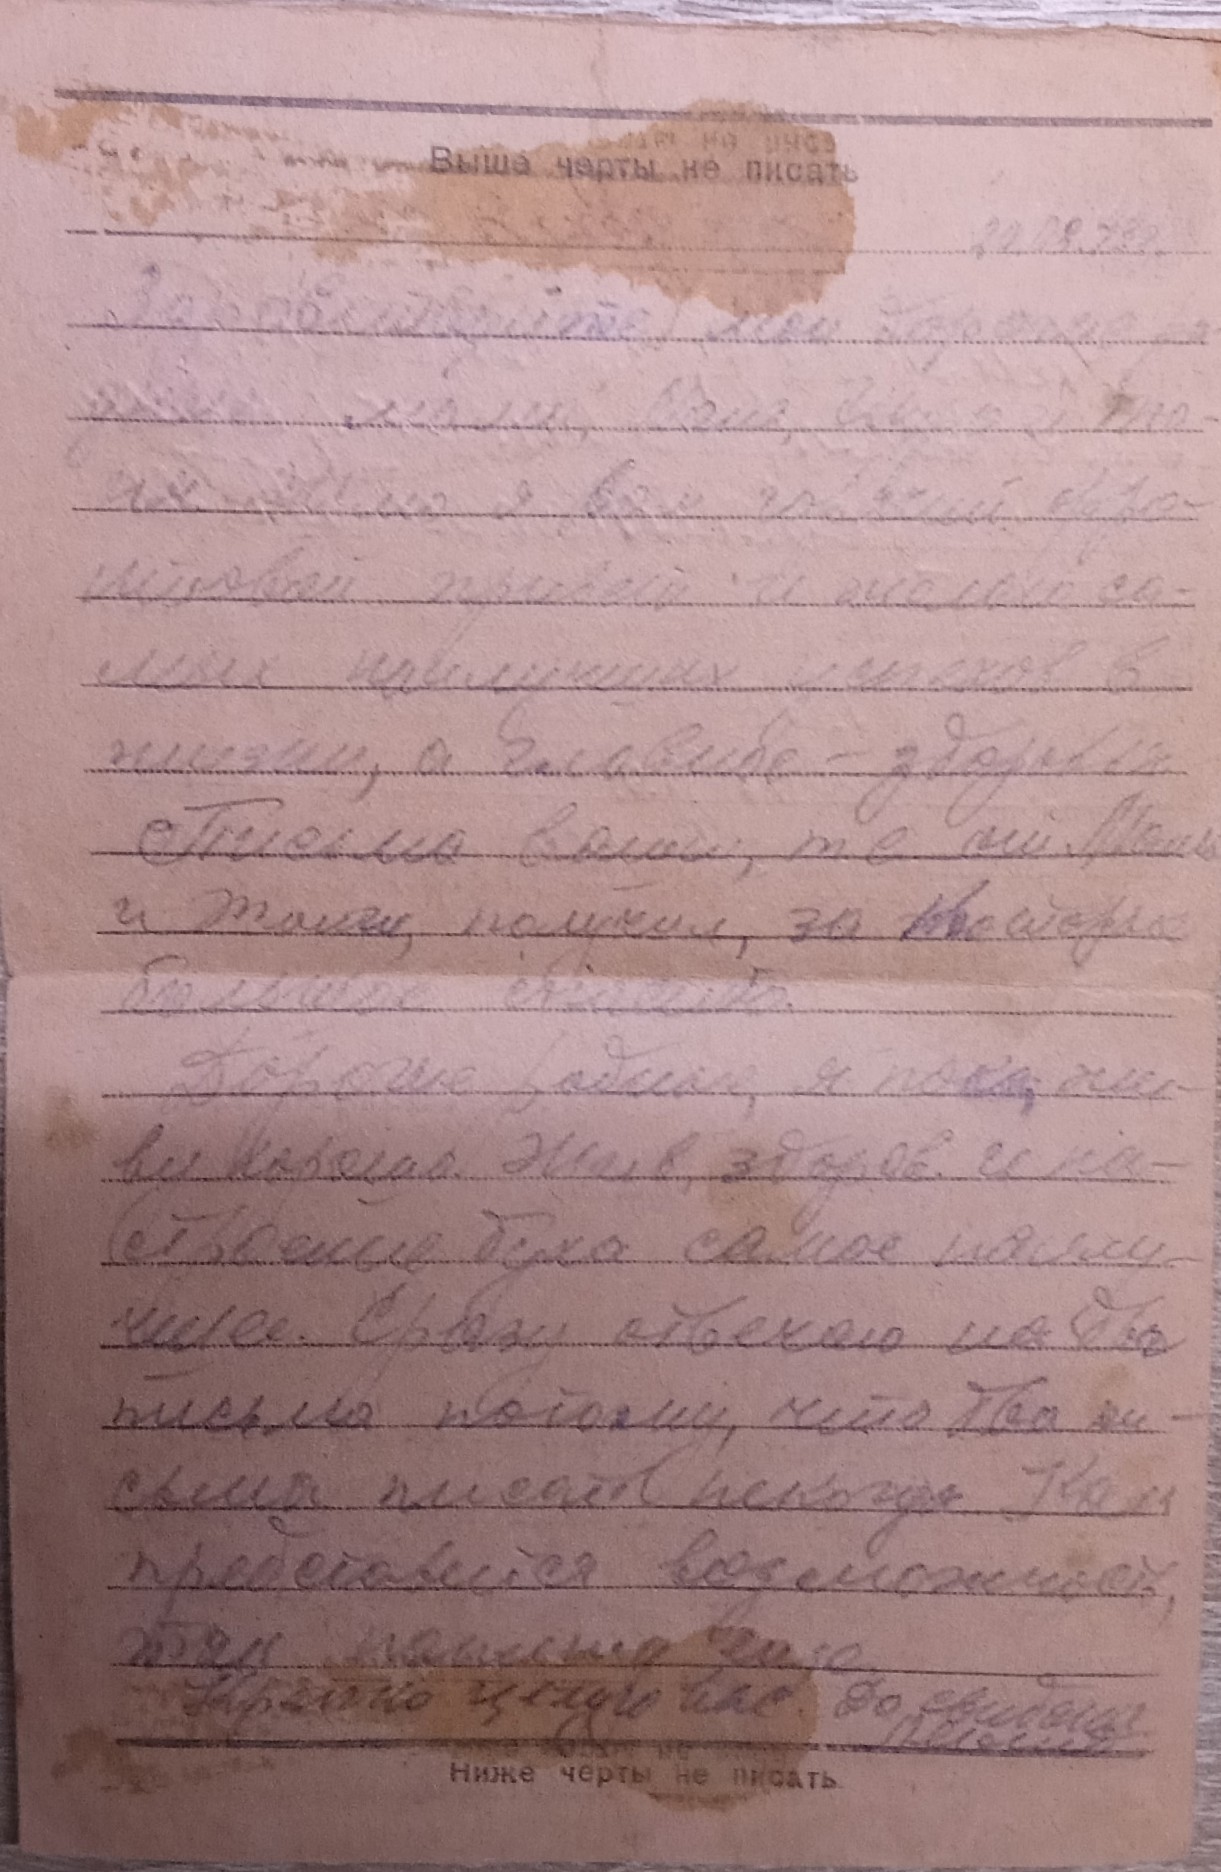 Выше черты не писать
Здравствуйте, мои дорогие ро-
мама,
я вам горячий фро-
нтовой привет и желаю са-
мых наилучших успехов в
жизни, а главное – здоровья
Письмо ваши, т е
и Толи, получил, за
большое спасибо.
Дорогие родные, я пока, жи-
ву хорошо. Жив, здоров. и на-
строение духа самое наилу-
чшее. Сразу отвечаю на два
письма потому, что два пи-
сьма писать некогда Как
представится возможность,
так напишу еще
Крепко целую вас. До свидания
Ниже черты не писать